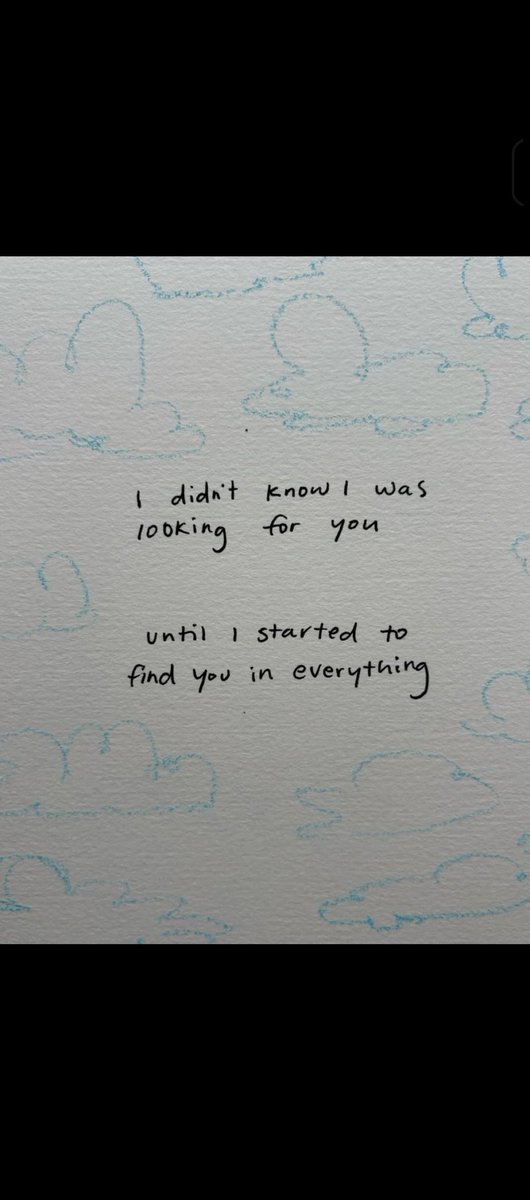 I didn't know I was
looking for you
until I started to
find you in everything